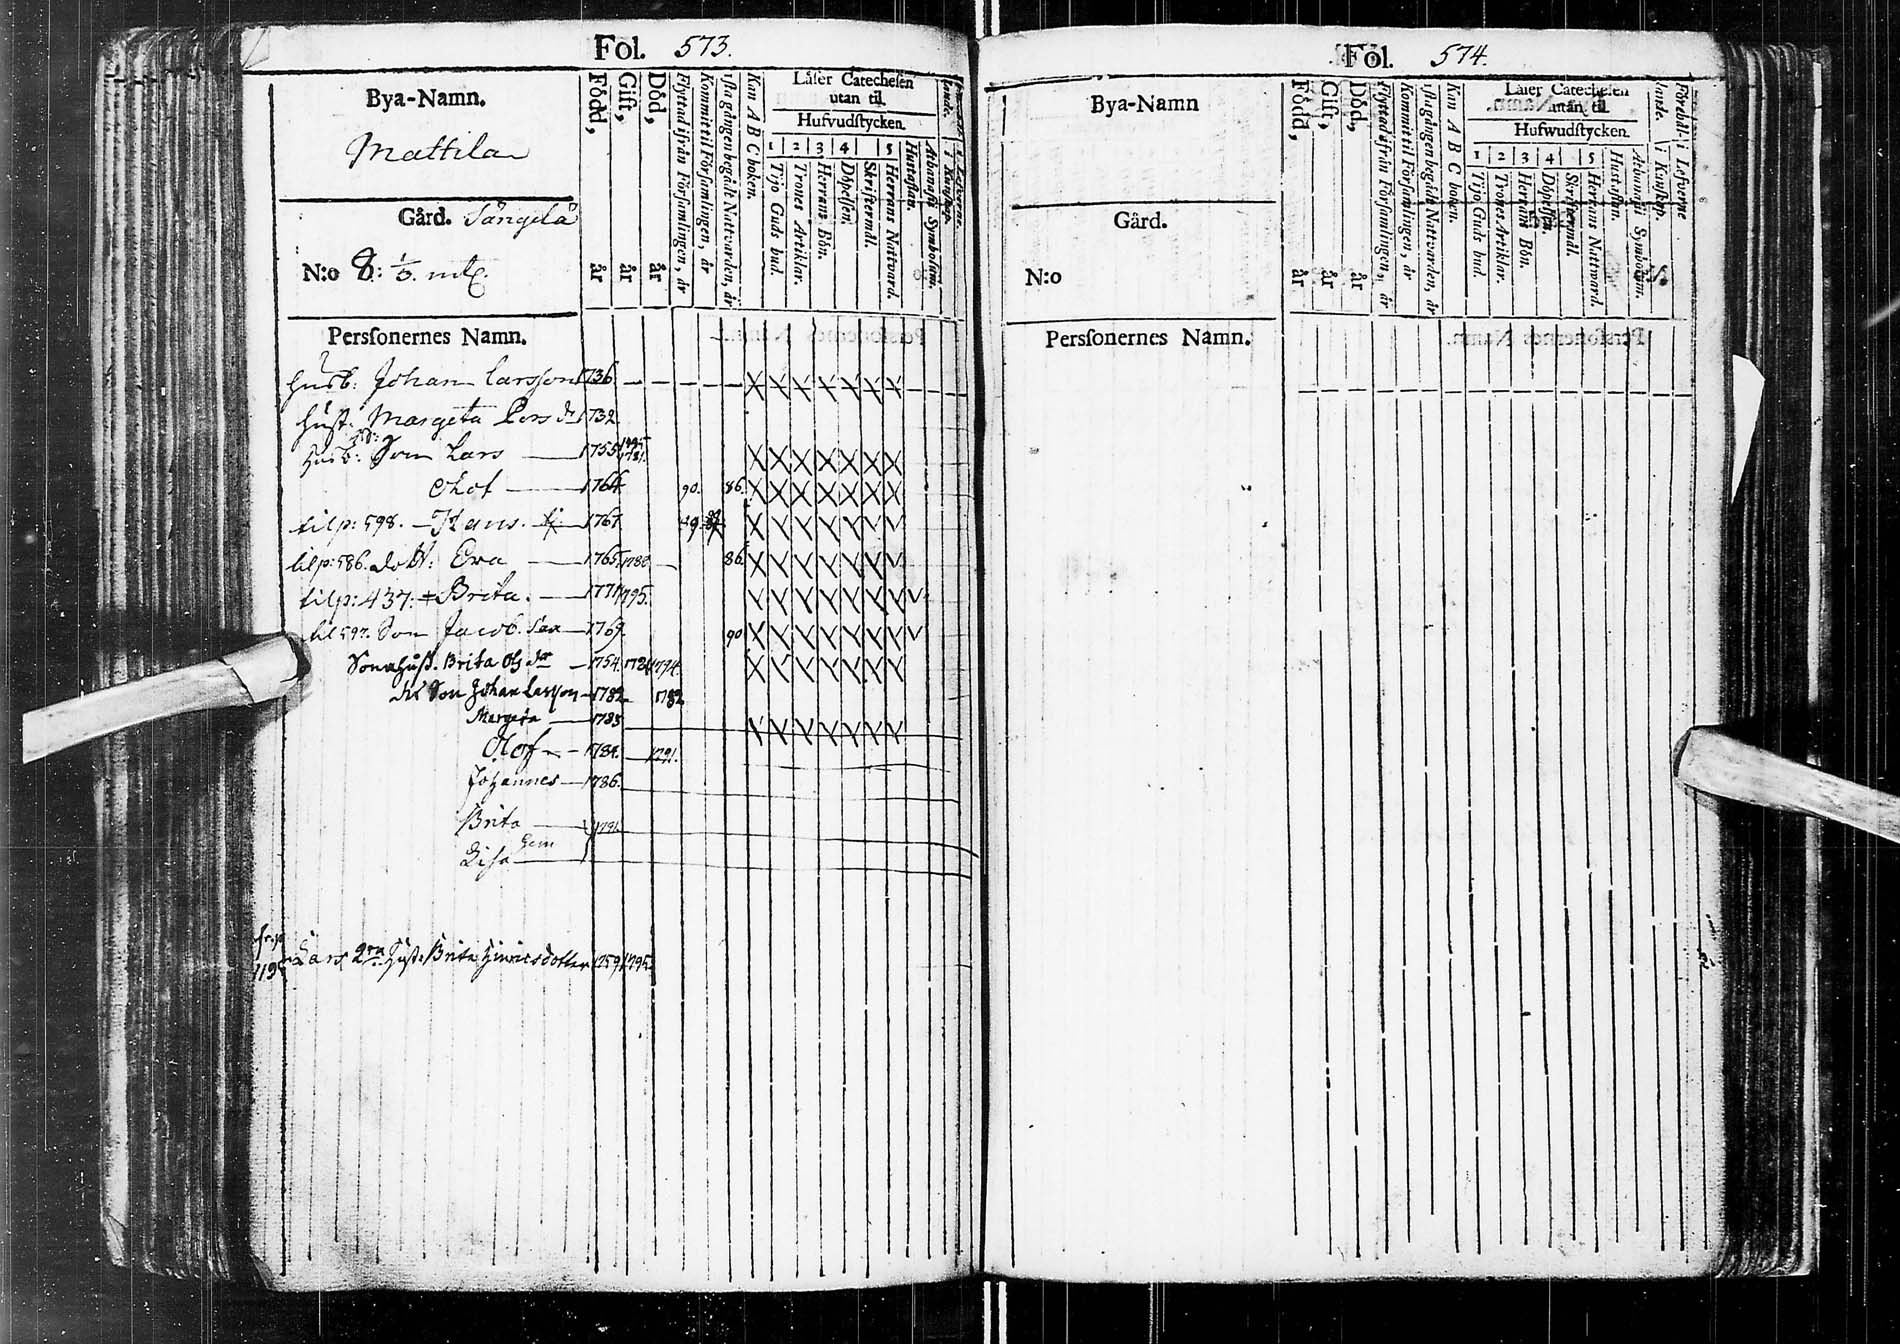 Fol. 573.
Bya-Namn.
Mattila
Gård. Sångelä
N:o 8:
Perſonernes Namn.
Född, år
Gift, år
Död, år
Flyttad ifrån Förſamlingen, år
Kommit til Förſamlingen, år
Kan A B C boken.
Läſer Catecheſen
utan til.
Hufvudſtycken.
1 2 3 4 5
Tijo Guds bud.
Trones Artiklar.
Herrans Bön.
Döpelſen.
Skriftermål.
Herrans Nattvard.
Huſtaflan.
Athanaſii Symbolum.
husb: Johan Larsson 1736.
huſt. Margeta Pers dr 1732.
husb: Son Lars 1755
Olof 1764 90. 86.
til p: 598. Hans. 1767
til p: 586. dott: Eva 1765. 86.
til p: 437: Brita. 1771 1795.
til 597. Son Jacob. 1769. 90
Sonahuſt. Brita Ols dr 1754. 1794.
Son Johan Larsson 1782 1782
Margeta 1783
Olof 1784. 1791.
Johannes 1786.
Brita 1791.
Gem
Lisa
Lars 2ra Huſt. Brita Hinricsdotter 1759 1795.
Föl. 574.
Bya-Namn
Gård.
N:o
Perſonernes Namn.
Född, år
Gift, år
Död, år
Flyttad ifrån Förſamlingen, år
Kommit til Förſamlingen, år
iſta gången begådt Nattvarden, år
Kan A B C boken.
Läſer Catecheſen
utan til.
Hufwudſtycken.
1 2 3 4 5
Tijo Guds bud.
Trones Artiklar.
Herrans Bön.
Döpelſen.
Skriftermål.
Herrans Nattward.
Huſtaflan.
Athanaſii Symbolum.
Förhållande. i Kunſkap.
i Lefverne